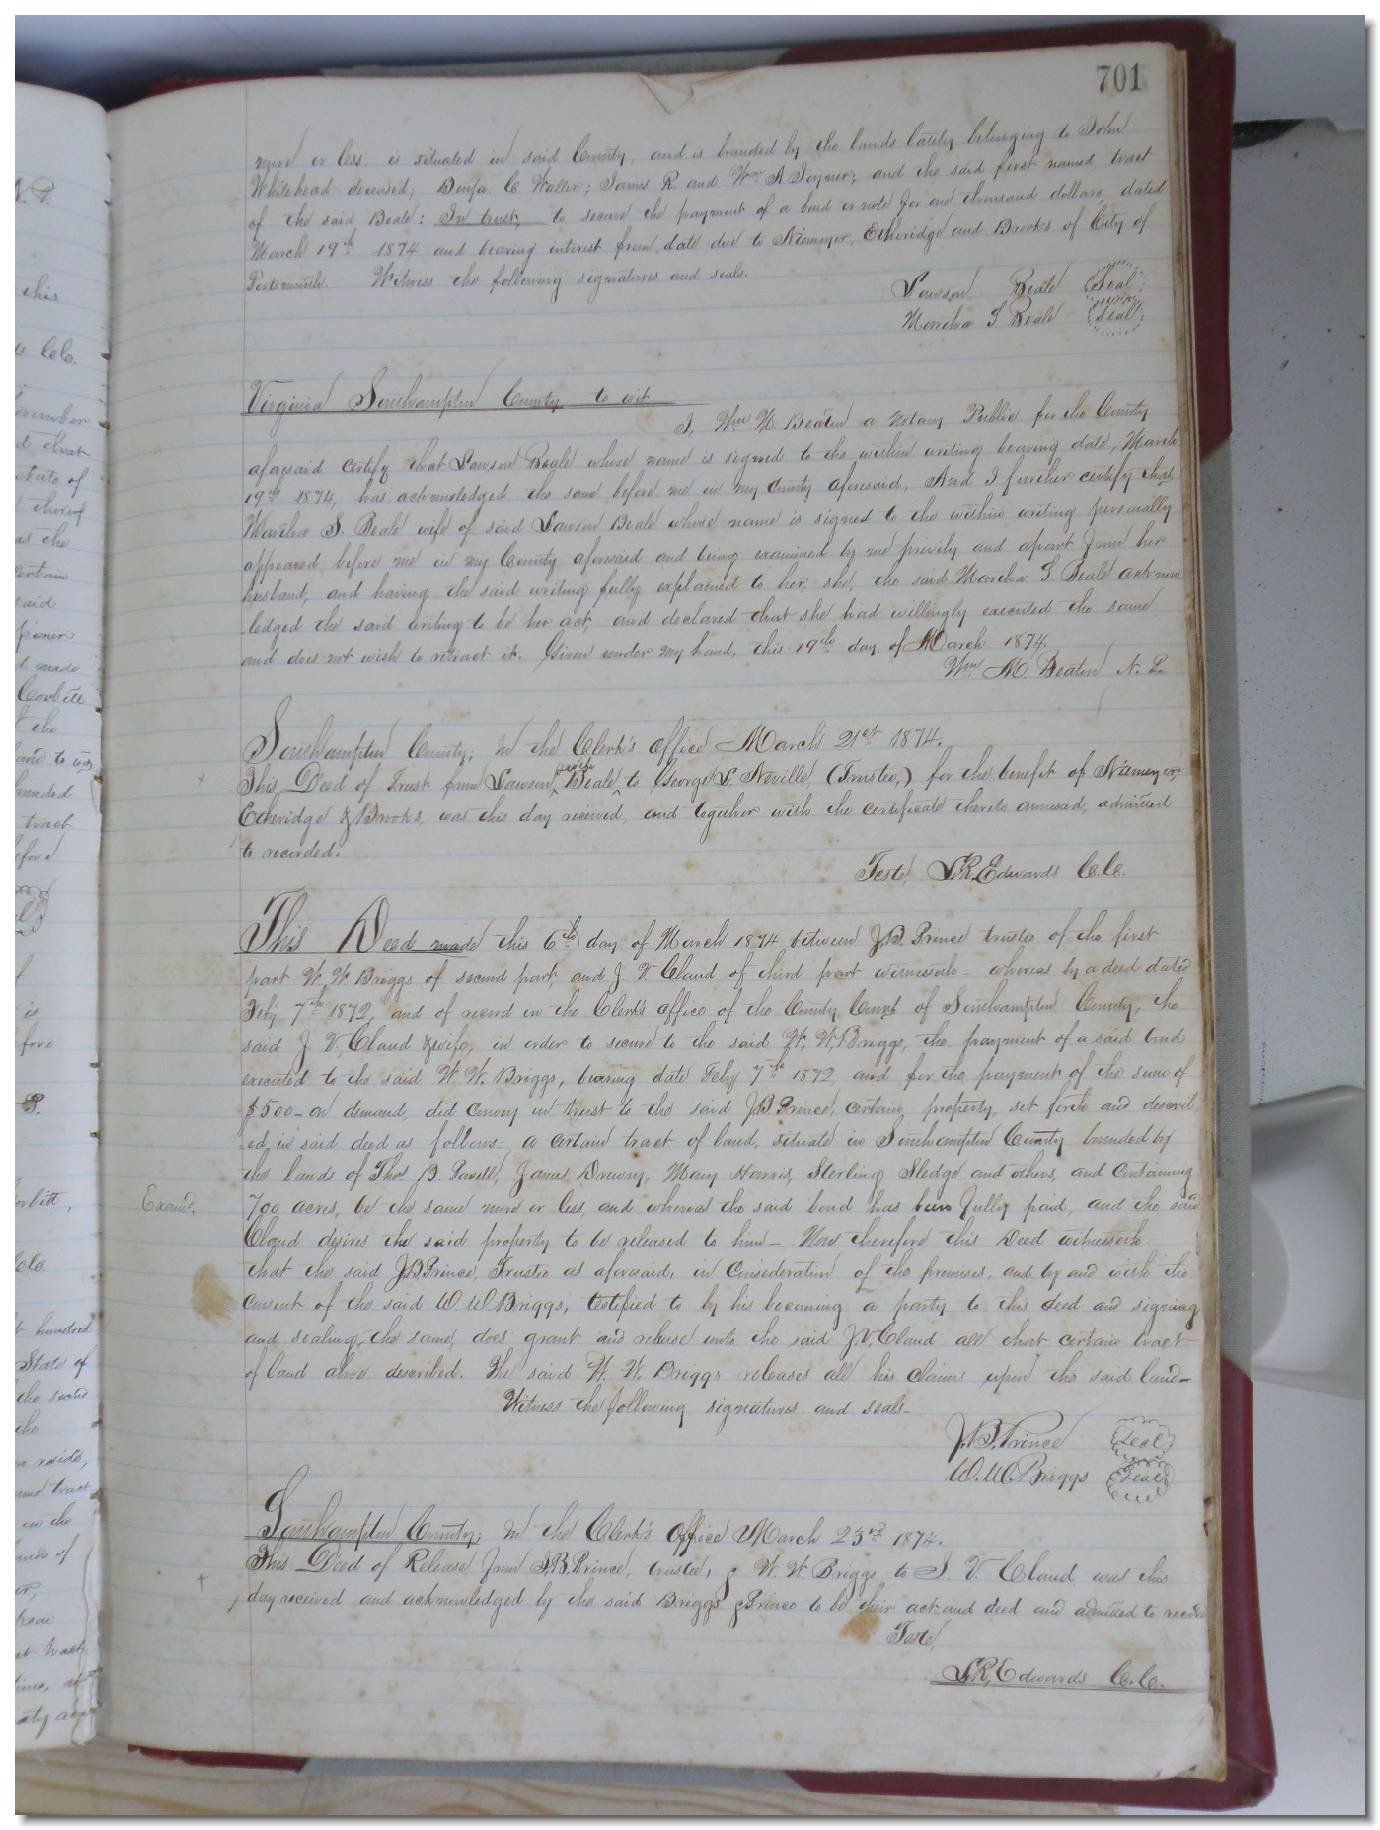 701
more or less, is situated in said County, and is bounded by the lands lately belonging to John
Whitehead deceased; Benja. C Waller; James R. and Wm A Joyner; and the said first named tract
of the said Beale: In trust, to secure the payment of a bond or note for one thousand dollars, dated
March 19th 1874 and bearing interest from date due to Niemeyer, Etheridge and Brooks of City of
Portsmouth. Witness the following signatures and seals.
Lawson Beale Seal
Martha S Beale Seal
Virginia Southampton County to wit
I, Wm M Beaton a Notary Public for the County
aforesaid certify that Lawson Beale whose name is signed to the within writing bearing date, March
19th 1874, has acknowledged the same before me in my County aforesaid. And I further certify that
Martha S. Beale wife of said Lawson Beale whose name is signed to the within writing personally
appeared before me in my County aforesaid and being examined by me privily and apart from her
husband, and having the said writing fully explained to her, she, the said Martha S. Beale acknow
ledged the said writing to be her act, and declared that she had willingly executed the same
and does not wish to retract it. Given under my hand, this 19th day of March 1874.
Wm M. Beaton N. P.
Southampton County; In the Clerk's office March 21st 1874.
This Deed of Trust from Lawson Beale to George L. Neville (Trustee,) for the benefit of Niemeyer,
Etheridge & Brooks, was this day received, and together with the certificate thereto annexed, admitted
to recorded.
Teste, L.R. Edwards C.C.
This Deed made this 6th day of March 1874 between J.B. Prince trustee of the first
part W. W. Briggs of second part, and J. V. Claud of third part witnesseth - whereas by a deed dated
Feby 7th 1872, and of record in the Clerk's office of the County Court of Southampton County, the
said J. V. Claud & wife, in order to secure to the said W. W. Briggs, the payment of a said bond
executed to the said W W. Briggs, bearing date Feby 7th 1872, and for the payment of the sum of
$500- on demand, did convey in trust to the said J.B. Prince, certain property, set forth and describ
ed, in said deed as follows: a certain tract of land, situate in Southampton County bounded by
the lands of Thos. B. Pavell, James Drewry, Mary Harris, Sterling Sledge and others, and containing
Examd.
700 acres, be the same more or less, and whereas the said bond has been fully paid, and the said
Claud desires the said property to be released to him- Now therefore this Deed witnesseth
that the said J.B. Prince, Trustee as aforesaid, in consideration of the premises, and by and with the
consent of the said W. W Briggs, testified to by his becoming a party to this deed and signing
and sealing the same, does grant and release unto the said J.V. Claud all that certain tract
of land above described. The said W. W. Briggs releases all his claims upon the said land-
Witness the following signatures and seals-
J.B. Prince Seal
W. W. Briggs Seal
Southampton County; In the Clerk's Office March 23rd 1874.
This Deed of Release from J.B. Prince, trustee, & W. W Briggs to J. V. Claud, was this
day received and acknowledged by the said Briggs & Prince to be their act and deed and admitted to record
Teste,
L.R. Edwards C.C.